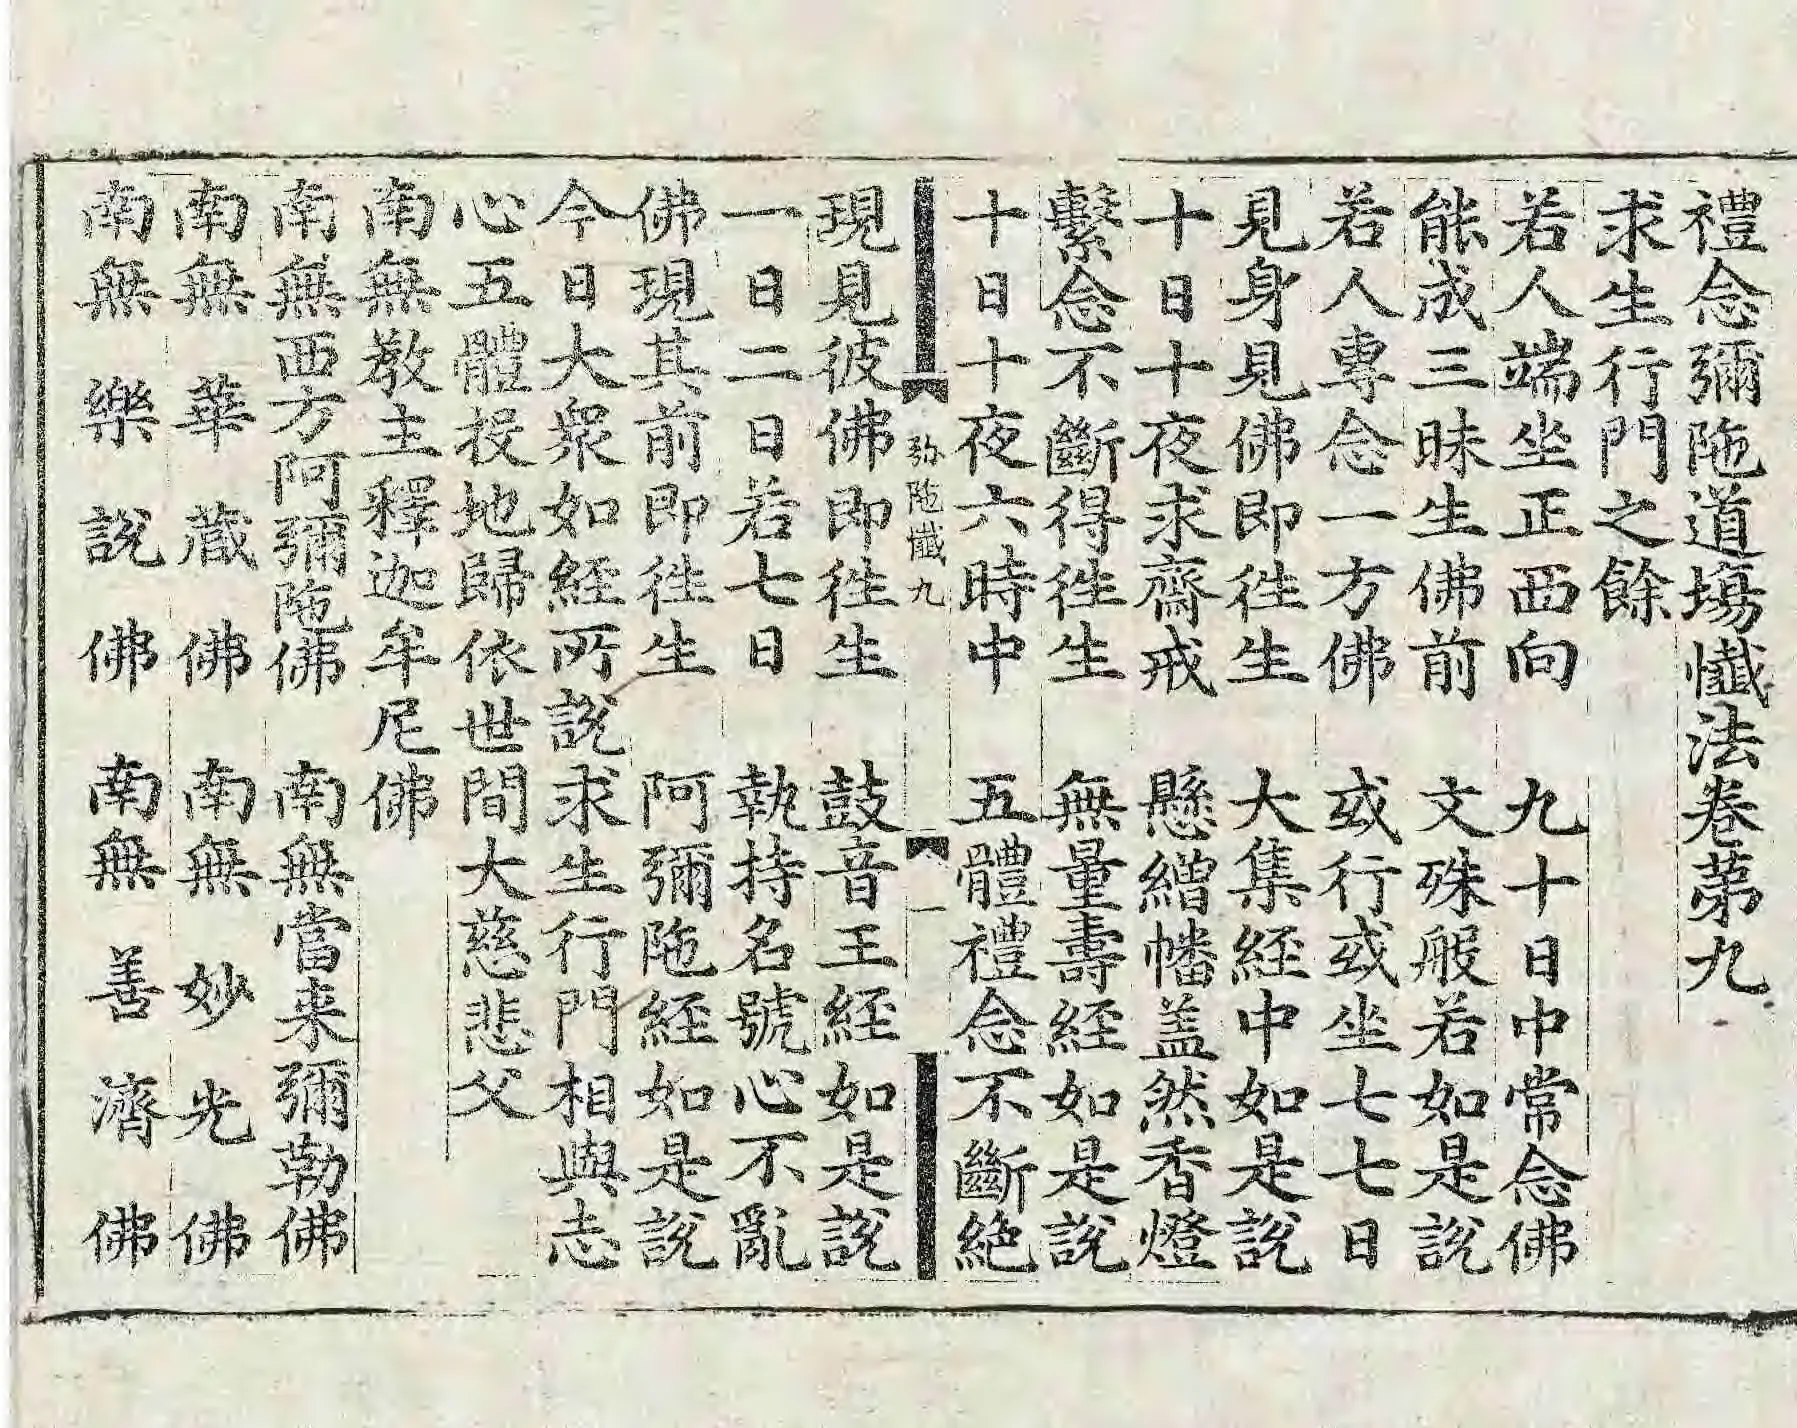 禮念彌陁道塲懴法卷苐九
求生行門之餘
若人端坐正西向　九十日中常念佛
能成三昧生佛前　文殊般若如是說
若人專念一方佛　或行或坐七七日
見身見佛即徃生　大集経中如是說
十日十夜求齋戒　懸繒幡盖然香燈
繫念不斷得徃生　無量壽経如是說
十日十夜六時中　五體禮念不斷絶
弥陁懴九　一
現見彼佛即徃生　鼓音王経如是說
一日二日若七日　執持名號心不亂
佛現其前即徃生　阿彌陁経如是說
今日大衆如経所說求生行門相與志
心五體投地歸依世間大慈悲父
南無敎主釋迦牟尼佛
南無西方阿彌陁佛　南無當来彌勒佛
南無華藏佛　南無妙光佛
南無樂說佛　南無善濟佛